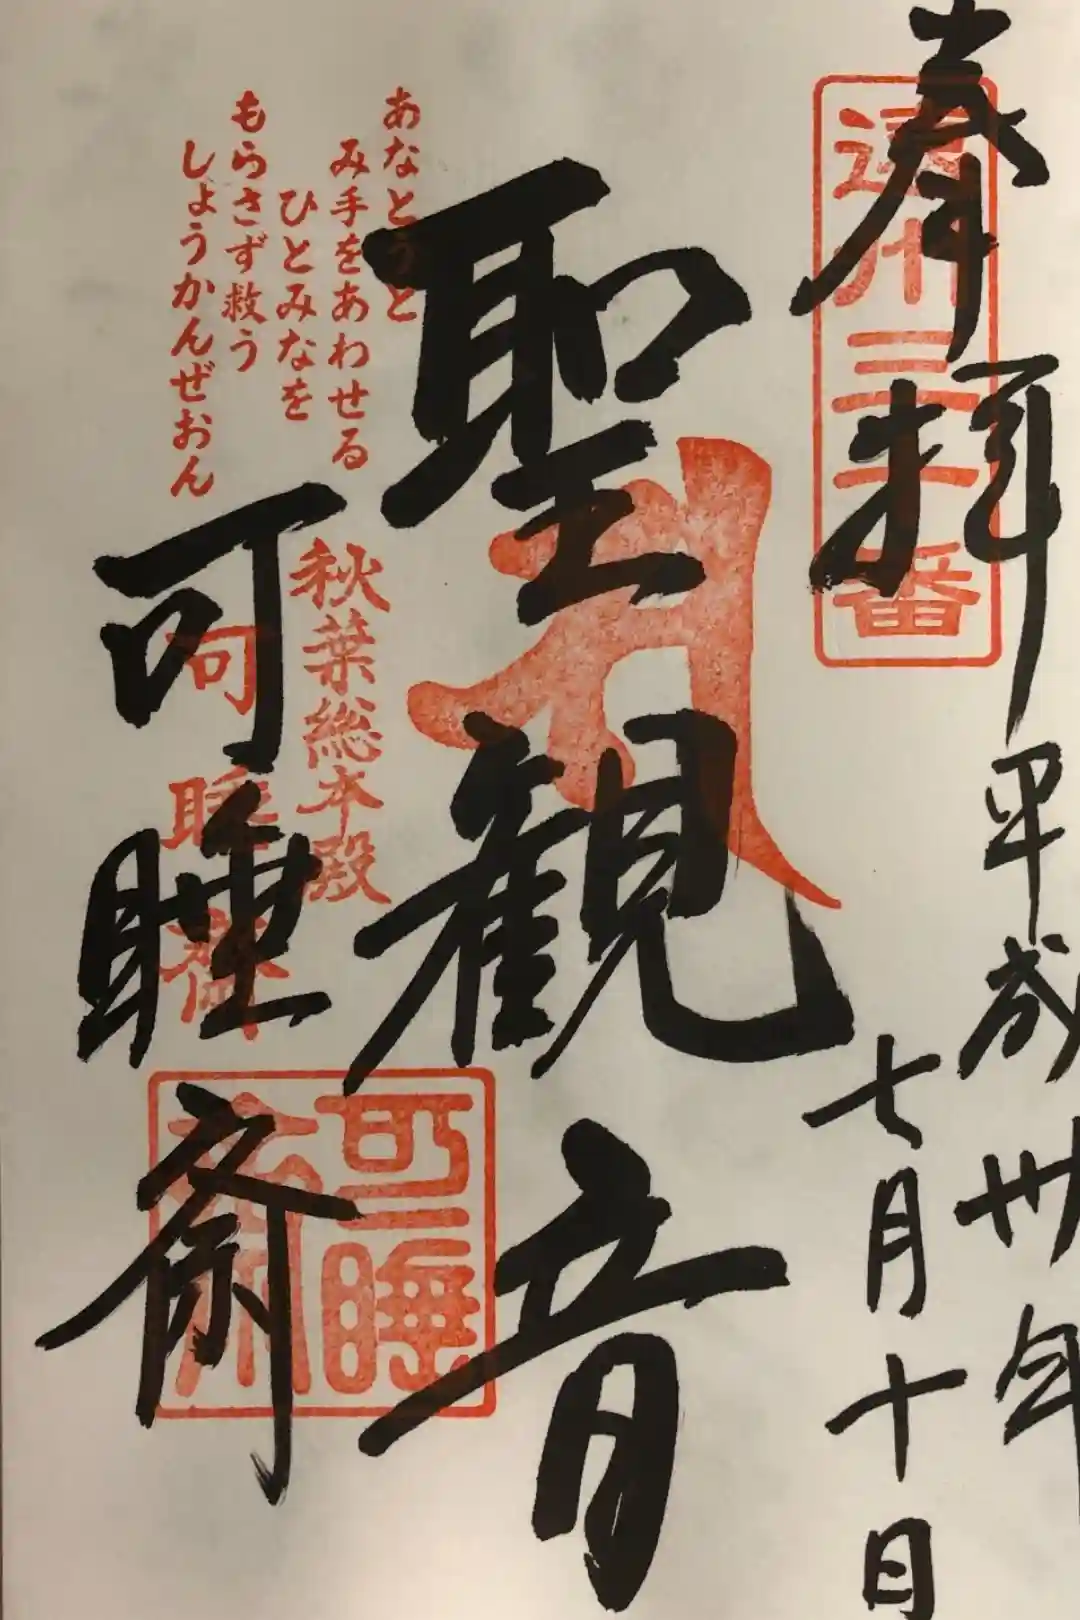 奉拝
遠州三十三番
平成卅年
七月十日
聖観音
あなとうと
み手をあわせる
ひとみなを
もらさず救う
しょうかんぜおん
秋葉総本殿
可睡斎
可睡齋
可睡斎